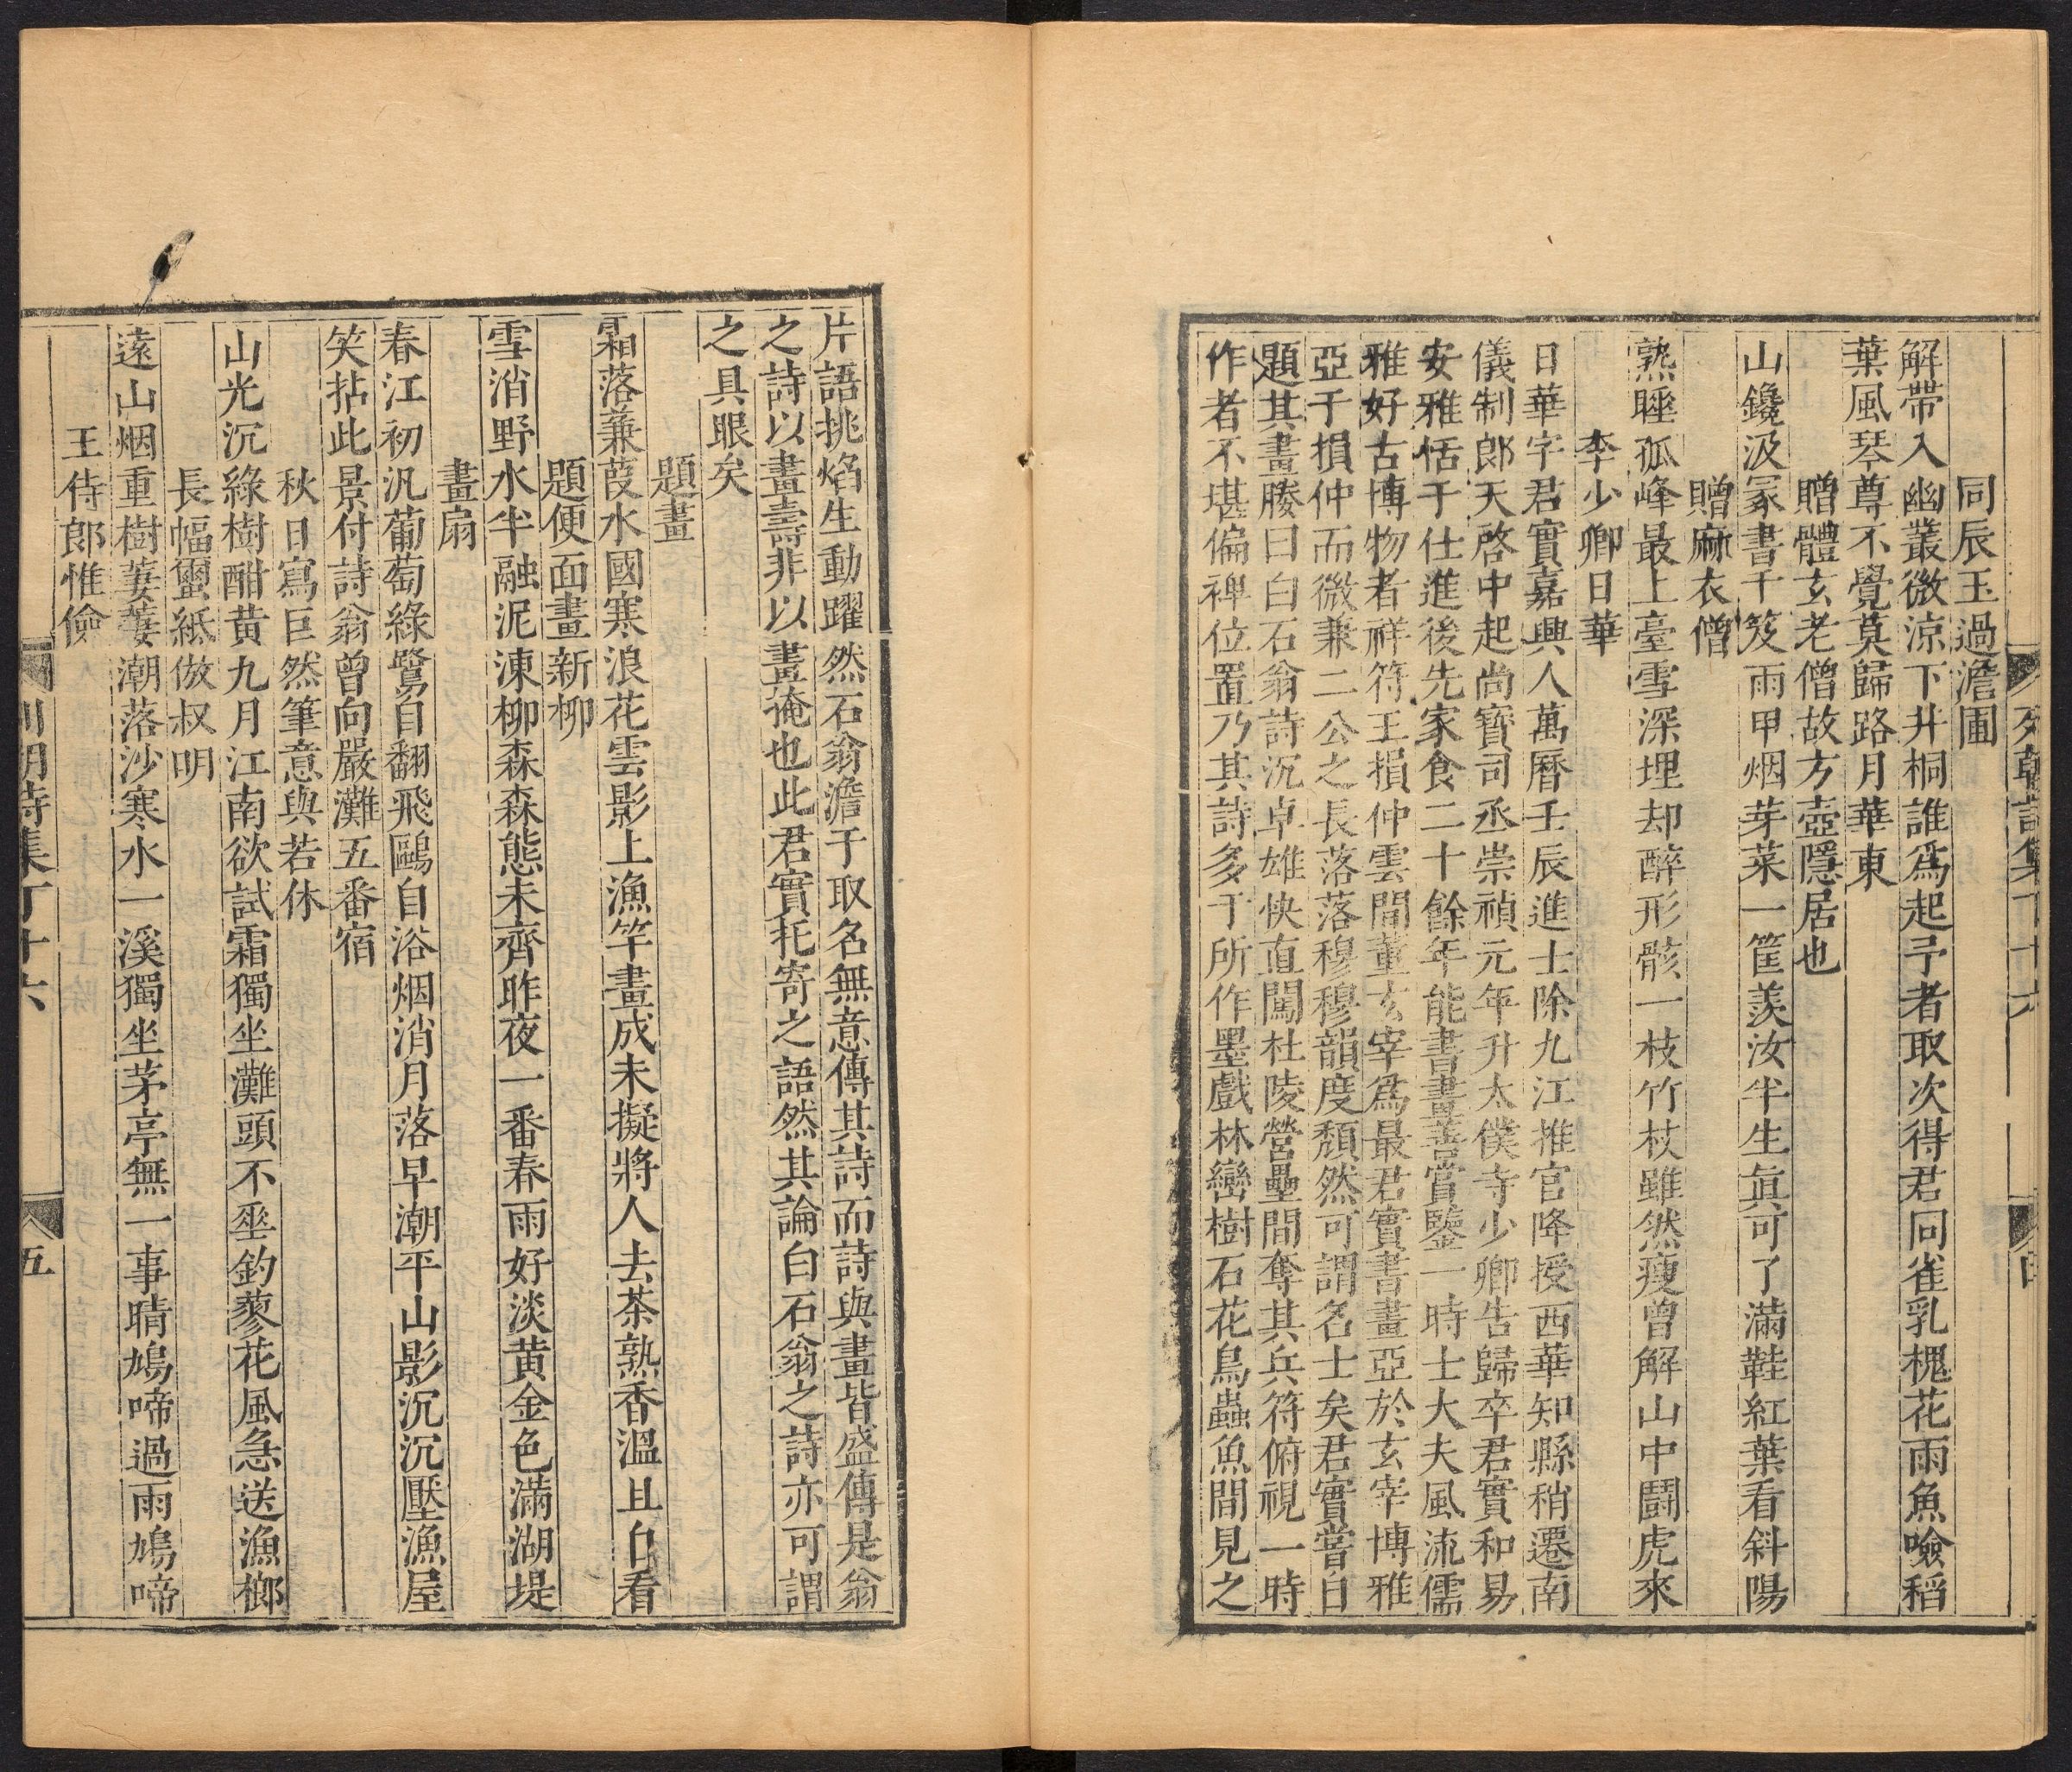 列朝詩集丁十六
四
同辰玉過澹圃
解帶入幽叢微涼下井桐誰爲起予者取次得君同雀乳槐花雨魚噞稻
葉風琴尊不覺莫歸路月華東
贈體玄老僧故方壺隱居也
山鑱汲冢書千笈雨甲烟芽菜一筐羨汝半生眞可了滿鞋紅葉看斜陽
贈麻衣僧
熟睡孤峰最上臺雪深埋却醉形骸一枝竹杖雖然瘦曾解山中鬪虎來
李少卿日華
日華字君實嘉興人萬曆壬辰進士除九江推官降授西華知縣稍遷南
儀制郎天啓中起尚寶司丞崇禎元年升太僕寺少卿告歸卒君實和易
安雅恬于仕進後先家食二十餘年能書畫善賞鑒一時士大夫風流儒
雅好古博物者祥符王損仲雲間董玄宰爲最君實書畫亞於玄宰博雅
亞于損仲而微兼二公之長落落穆穆韻度頹然可謂名士矣君實嘗自
題其畫媵曰白石翁詩沉卓雄快直闖杜陵營壘間奪其兵符俯視一時
作者不堪偏裨位置乃其詩多于所作墨戲林巒樹石花鳥蟲魚間見之
片語挑焰生動躍然石翁澹于取名無意傳其詩而詩與畫皆盛傳是翁
之詩以畫壽非以畫掩也此君實托寄之語然其論白石翁之詩亦可謂
之具眼矣
題畫
霜落蒹葭水國寒浪花雲影上漁竿畫成未擬將人去茶熟香溫且自看
題便面畫新柳
雪消野水半融泥涷柳森森態未齊昨夜一番春雨好淡黄金色滿湖堤
畫扇
春江初汎葡萄綠鷺自翻飛鷗自浴烟消月落早潮平山影沉沉壓漁屋
笑拈此景付詩翁曾向嚴灘五番宿
秋日寫巨然筆意與若休
山光沉綠樹酣黄九月江南欲試霜獨坐灘頭不垂釣蓼花風急送漁榔
長幅璽紙倣叔明
遠山烟重樹萋萋潮落沙寒水一溪獨坐茅亭無一事晴鳩啼過雨鳩啼
王侍郎惟儉
列朝詩集丁十六
五